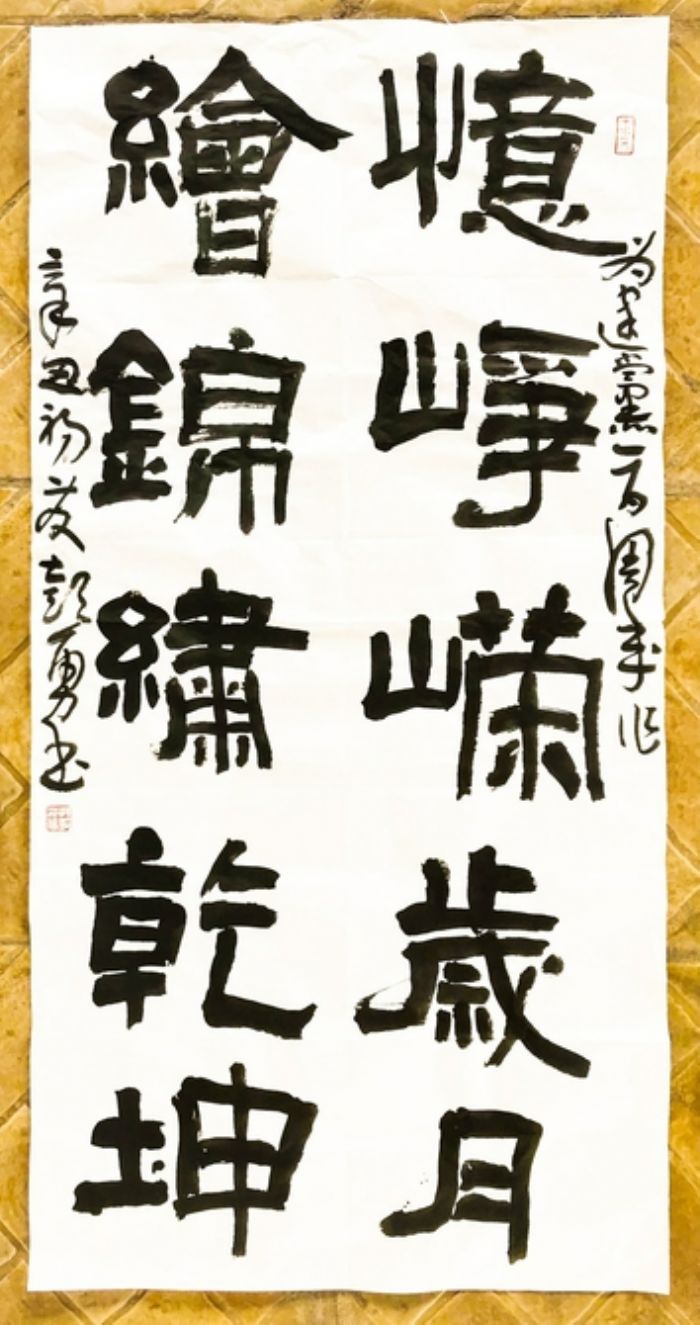 为建黨一百周年作
憶崢嶸歲月
繪錦繡乾坤
辛丑初夏彭勇书